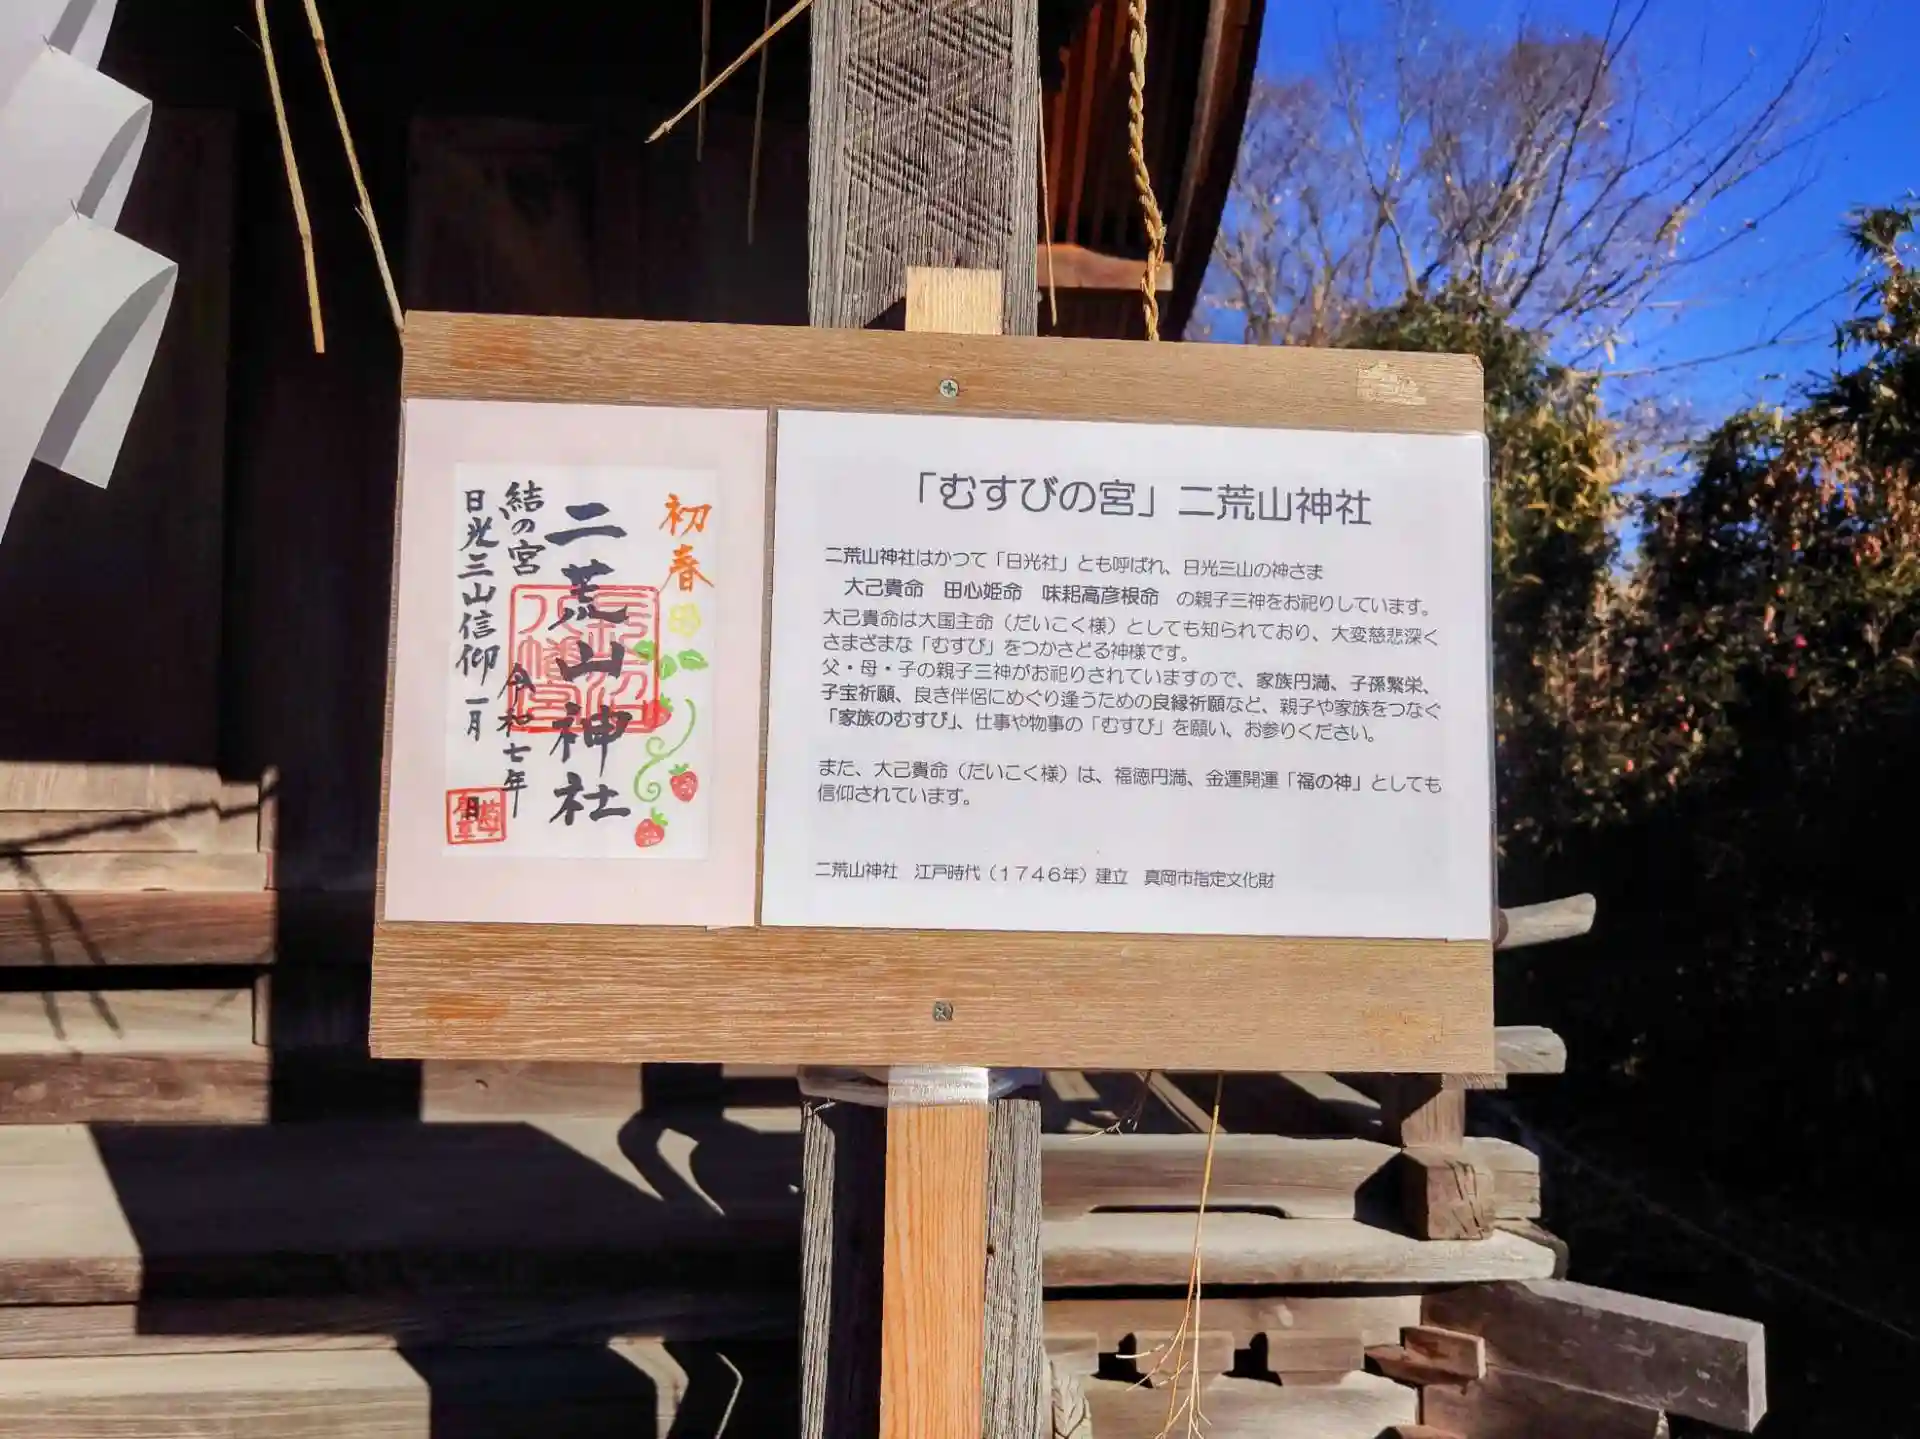 初春
二荒山神社
令和七年
日
結の宮
日光三山信仰 一月
「むすびの宮」二荒山神社
二荒山神社はかつて「日光社」とも呼ばれ、日光三山の神さま
大己貴命　田心姫命　味耜高彦根命　の親子三神をお祀りしています。
大己貴命は大国主命（だいこく様）としても知られており、大変慈悲深く
さまざまな「むすび」をつかさどる神様です。
父・母・子の親子三神がお祀りされていますので、家族円満、子孫繁栄、
子宝祈願、良き伴侶にめぐり逢うための良縁祈願など、親子や家族をつなぐ
「家族のむすび」、仕事や物事の「むすび」を願い、お参りください。
また、大己貴命（だいこく様）は、福徳円満、金運開運「福の神」としても
信仰されています。
二荒山神社　江戸時代（１７４６年）建立　真岡市指定文化財